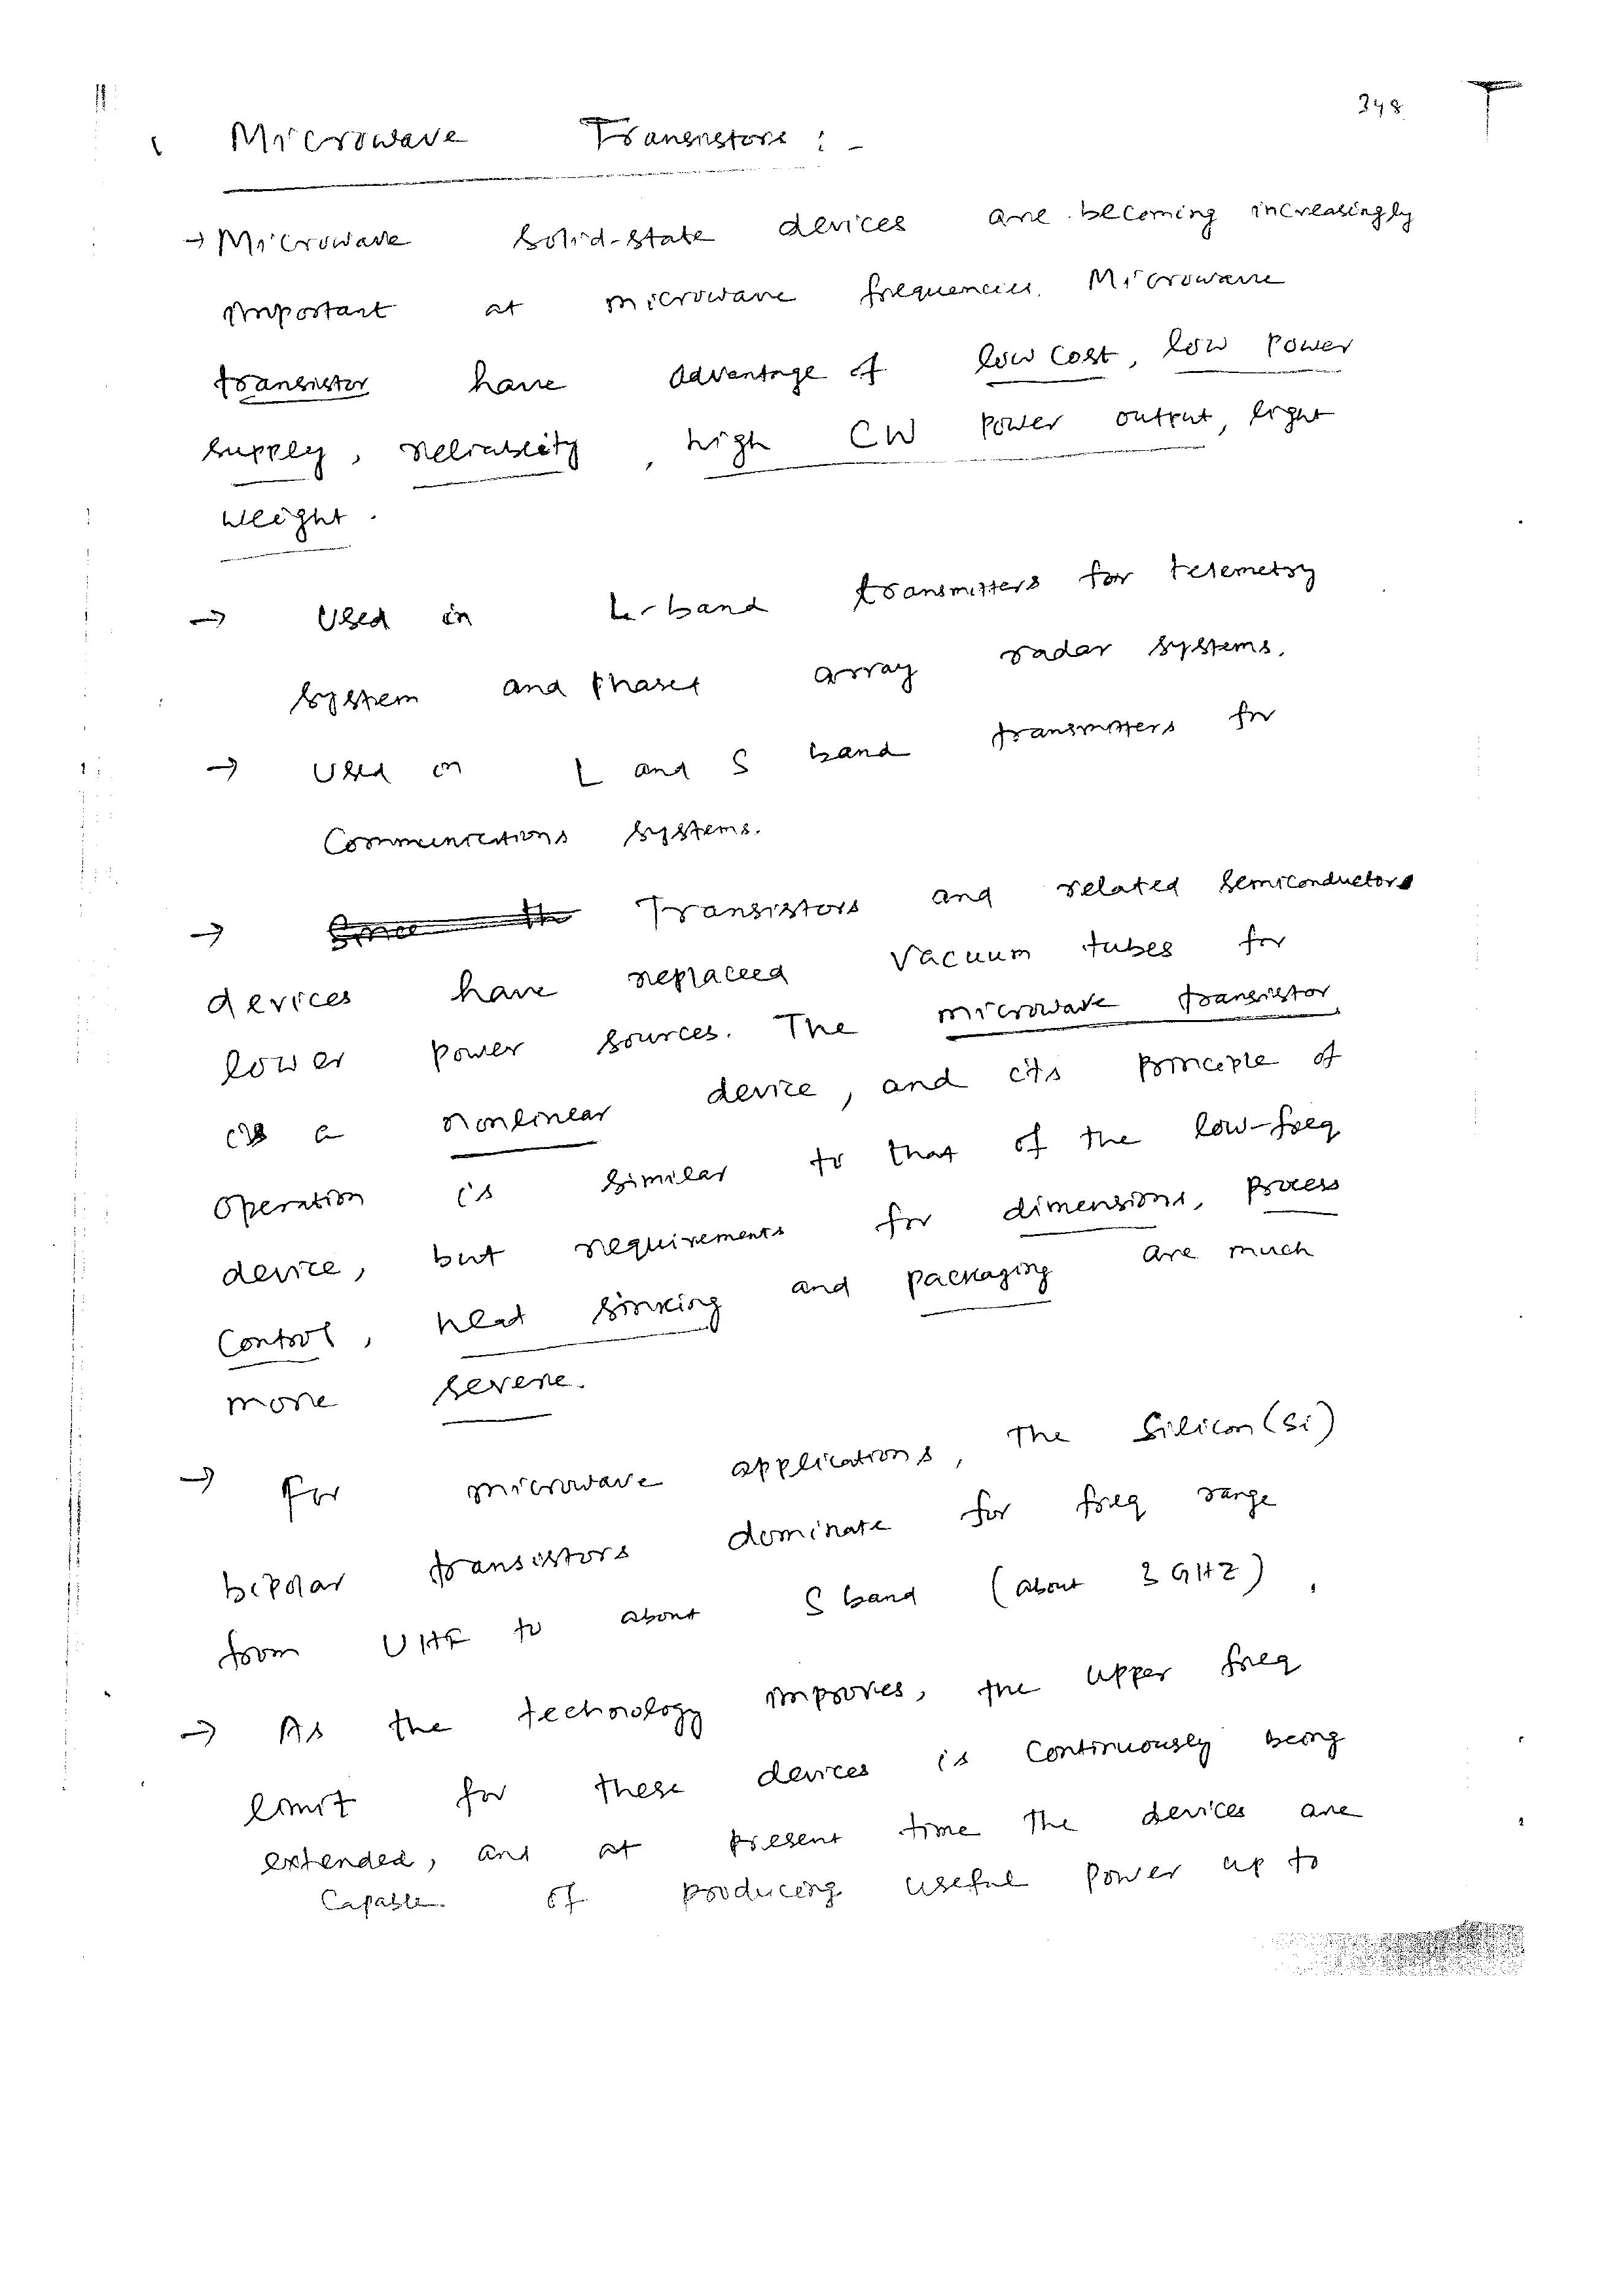 348
Microwave Transistors : -
→ Microwave solid-state devices are becoming increasingly
important at microwave frequencies. Microwave
transistor have advantage of low cost, low power
supply, reliability, high CW power output, light
weight.
→ Used in L-band transmitters for telemetry
system and phase array radar systems.
→ Used in L and S band transmitters for
Communications systems.
→ Since th Transistors and related semiconductors
devices have replaced vacuum tubes for
lower power sources. The microwave transistor
is a nonlinear device, and its principle of
operation is similar to that of the low-freq
device, but requirements for dimensions, process
control, heat sinking and packaging are much
more severe.
→ For microwave applications, the Silicon (Si)
bipolar transistors dominate for freq range
from UHF to about S band (about 3 GHZ).
→ As the technology improves, the upper freq
limit for these devices is continuously being
extended, and at present time the devices are
Capable of producing useful power up to